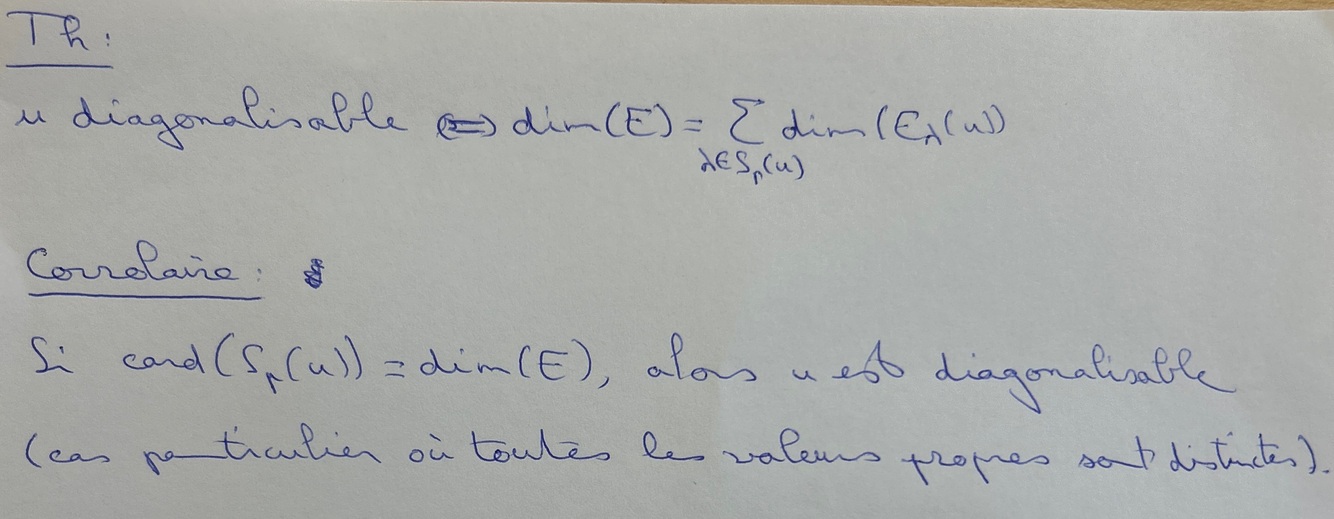 Th :
u diagonalisable ⟺ dim(E) = ∑ dim(E_λ(u))
λ∈Sp(u)
Correlaire :
Si card(Sp(u)) = dim(E), alors u est diagonalisable
(cas particulier où toutes les valeurs propres sont distinctes).